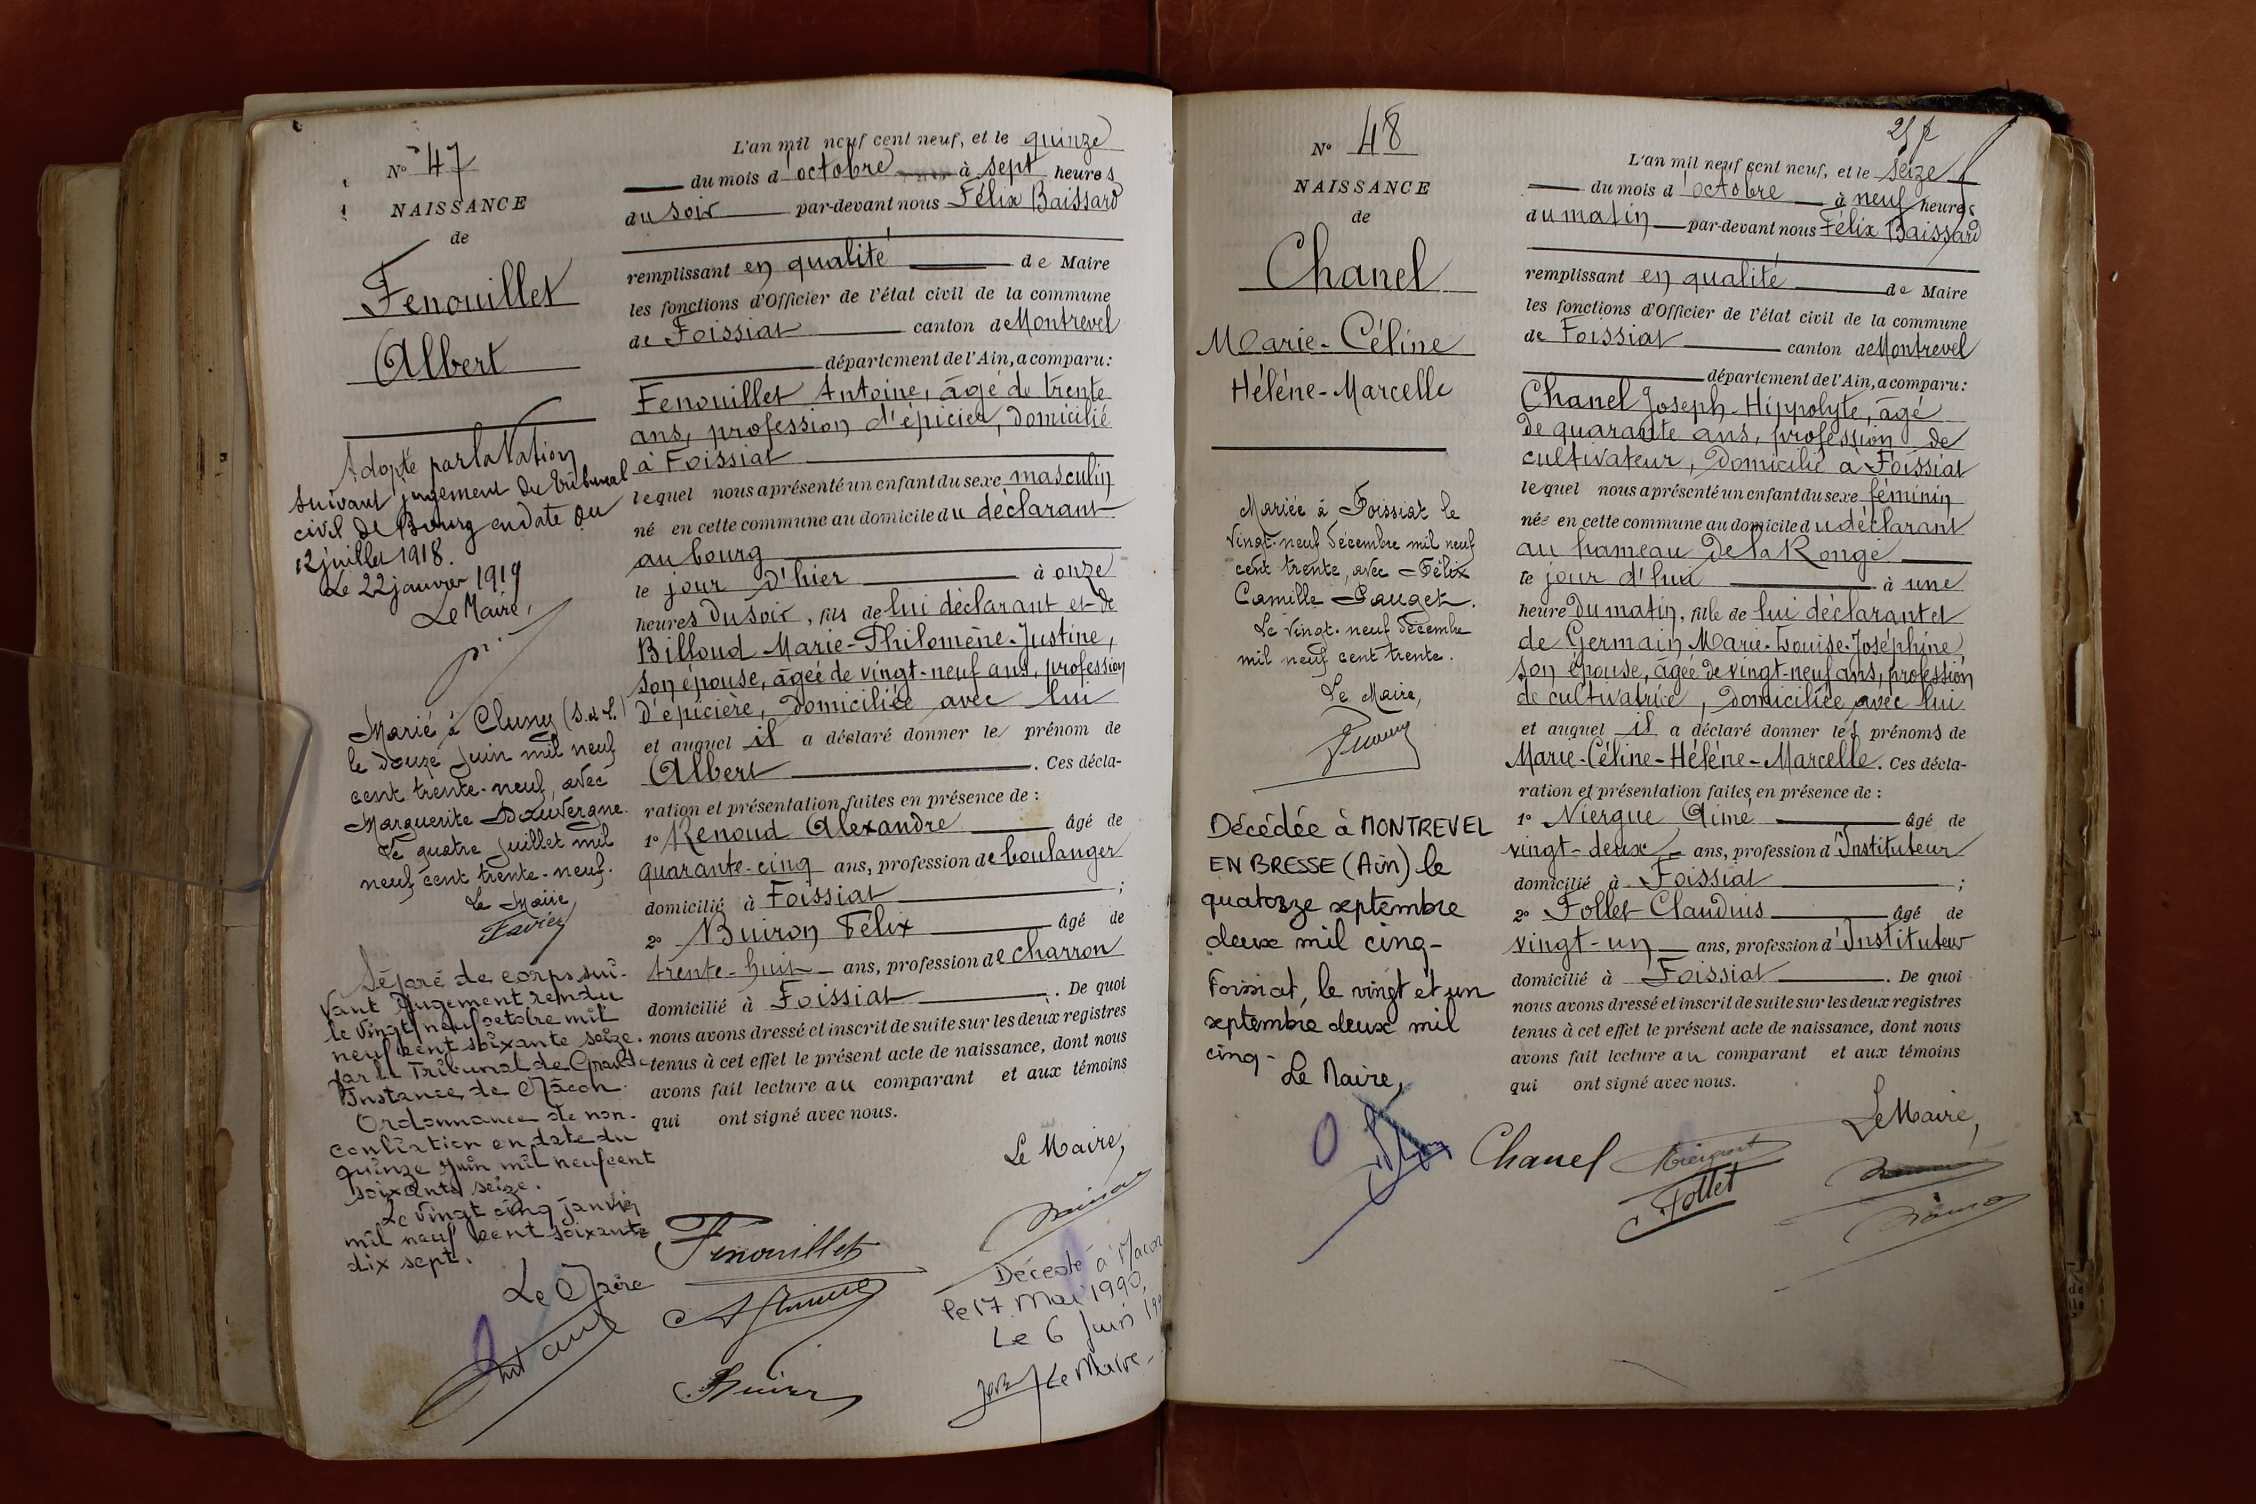 N° 47
NAISSANCE
de
Fenouillet
Albert
Adopté par la Nation
suivant jugement du tribunal
civil de Bourg en date du
12 juillet 1918.
Le 22 janvier 1919
Le Maire,
Marié à Cluny (S. et L.)
le douze juin mil neuf
cent trente-neuf, avec
Marguerite Dauvergne.
Le quatre juillet mil
neuf cent trente-neuf.
Le Maire,
Séparé de corps sui-
vant jugement rendu
le vingt neuf octobre mil
neuf cent soixante seize.
par le Tribunal de Grande
Instance de Mâcon.
Ordonnance de non-
conciliation en date du
quinze juin mil neuf cent
soixante seize.
Le vingt cinq janvier
mil neuf cent soixante
dix sept.
Le Maire
L'an mil neuf cent neuf, et le quinze
du mois d'octobre à sept heures
du soir par-devant nous Félix Baissard
remplissant en qualité de Maire
les fonctions d'Officier de l'état civil de la commune
de Foissiat canton de Montrevel
département de l'Ain, a comparu :
Fenouillet Antoine, âgé de trente
ans, profession d'épicier, domicilié
à Foissiat
lequel nous a présenté un enfant du sexe masculin
né en cette commune au domicile du déclarant
au bourg
le jour d'hier à onze
heures du soir, fils de lui déclarant et de
Billoud Marie-Philomène-Justine,
son épouse, âgée de vingt-neuf ans, profession
d'épicière, domiciliée avec lui
et auquel il a déclaré donner le prénom de
Albert. Ces décla-
ration et présentation faites en présence de :
1° Renoud Alexandre âgé de
quarante-cinq ans, profession de boulanger
domicilié à Foissiat ;
2° Buiron Félix âgé de
trente-huit ans, profession de charron
domicilié à Foissiat. De quoi
nous avons dressé et inscrit de suite sur les deux registres
tenus à cet effet le présent acte de naissance, dont nous
avons fait lecture au comparant et aux témoins
qui ont signé avec nous.
Le Maire,
Fenouillet
Décédé à Macon
le 17 Mai 1990,
Le 6 Juin
Le Maire.
N° 48
NAISSANCE
de
Chanel
Marie-Céline
Hélène-Marcelle
Mariée à Foissiat le
vingt-neuf décembre mil neuf
cent trente, avec Félix
Camille Pauget.
Le vingt-neuf décembre
mil neuf cent trente.
Le Maire,
Décédée à MONTREVEL
EN BRESSE (Ain) le
quatorze septembre
deux mil cinq-
Foissiat, le vingt et un
septembre deux mil
cinq-
Le Maire,
L'an mil neuf cent neuf, et le seize
du mois d'octobre à neuf heures
du matin par-devant nous Félix Baissard
remplissant en qualité de Maire
les fonctions d'Officier de l'état civil de la commune
de Foissiat canton de Montrevel
département de l'Ain, a comparu :
Chanel Joseph-Hippolyte, âgé
de quarante ans, profession de
cultivateur, domicilié à Foissiat
lequel nous a présenté un enfant du sexe féminin
née en cette commune au domicile du déclarant
au hameau de la Ronge
le jour d'hui à une
heure du matin, fille de lui déclarant et
de Germain Marie-Louise-Joséphine
son épouse, âgée de vingt-neuf ans, profession
de cultivatrice, domiciliée avec lui
et auquel il a déclaré donner les prénoms de
Marie-Céline-Hélène-Marcelle. Ces décla-
ration et présentation faites en présence de :
1° Niergue Aimé âgé de
vingt-deux ans, profession d'Instituteur
domicilié à Foissiat ;
2° Follet Claudius âgé de
vingt-un ans, profession d'Instituteur
domicilié à Foissiat. De quoi
nous avons dressé et inscrit de suite sur les deux registres
tenus à cet effet le présent acte de naissance, dont nous
avons fait lecture au comparant et aux témoins
qui ont signé avec nous.
Le Maire,
Chanel
Follet